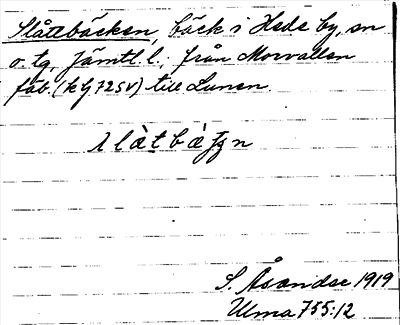 Slåttebäcken, bäck i Hede by, sn
o. tg, Jämtl. l., från Morvallen
fäb. (kbj 72SV) till Lunen.
S. Åsander 1919
Ulma 755:12